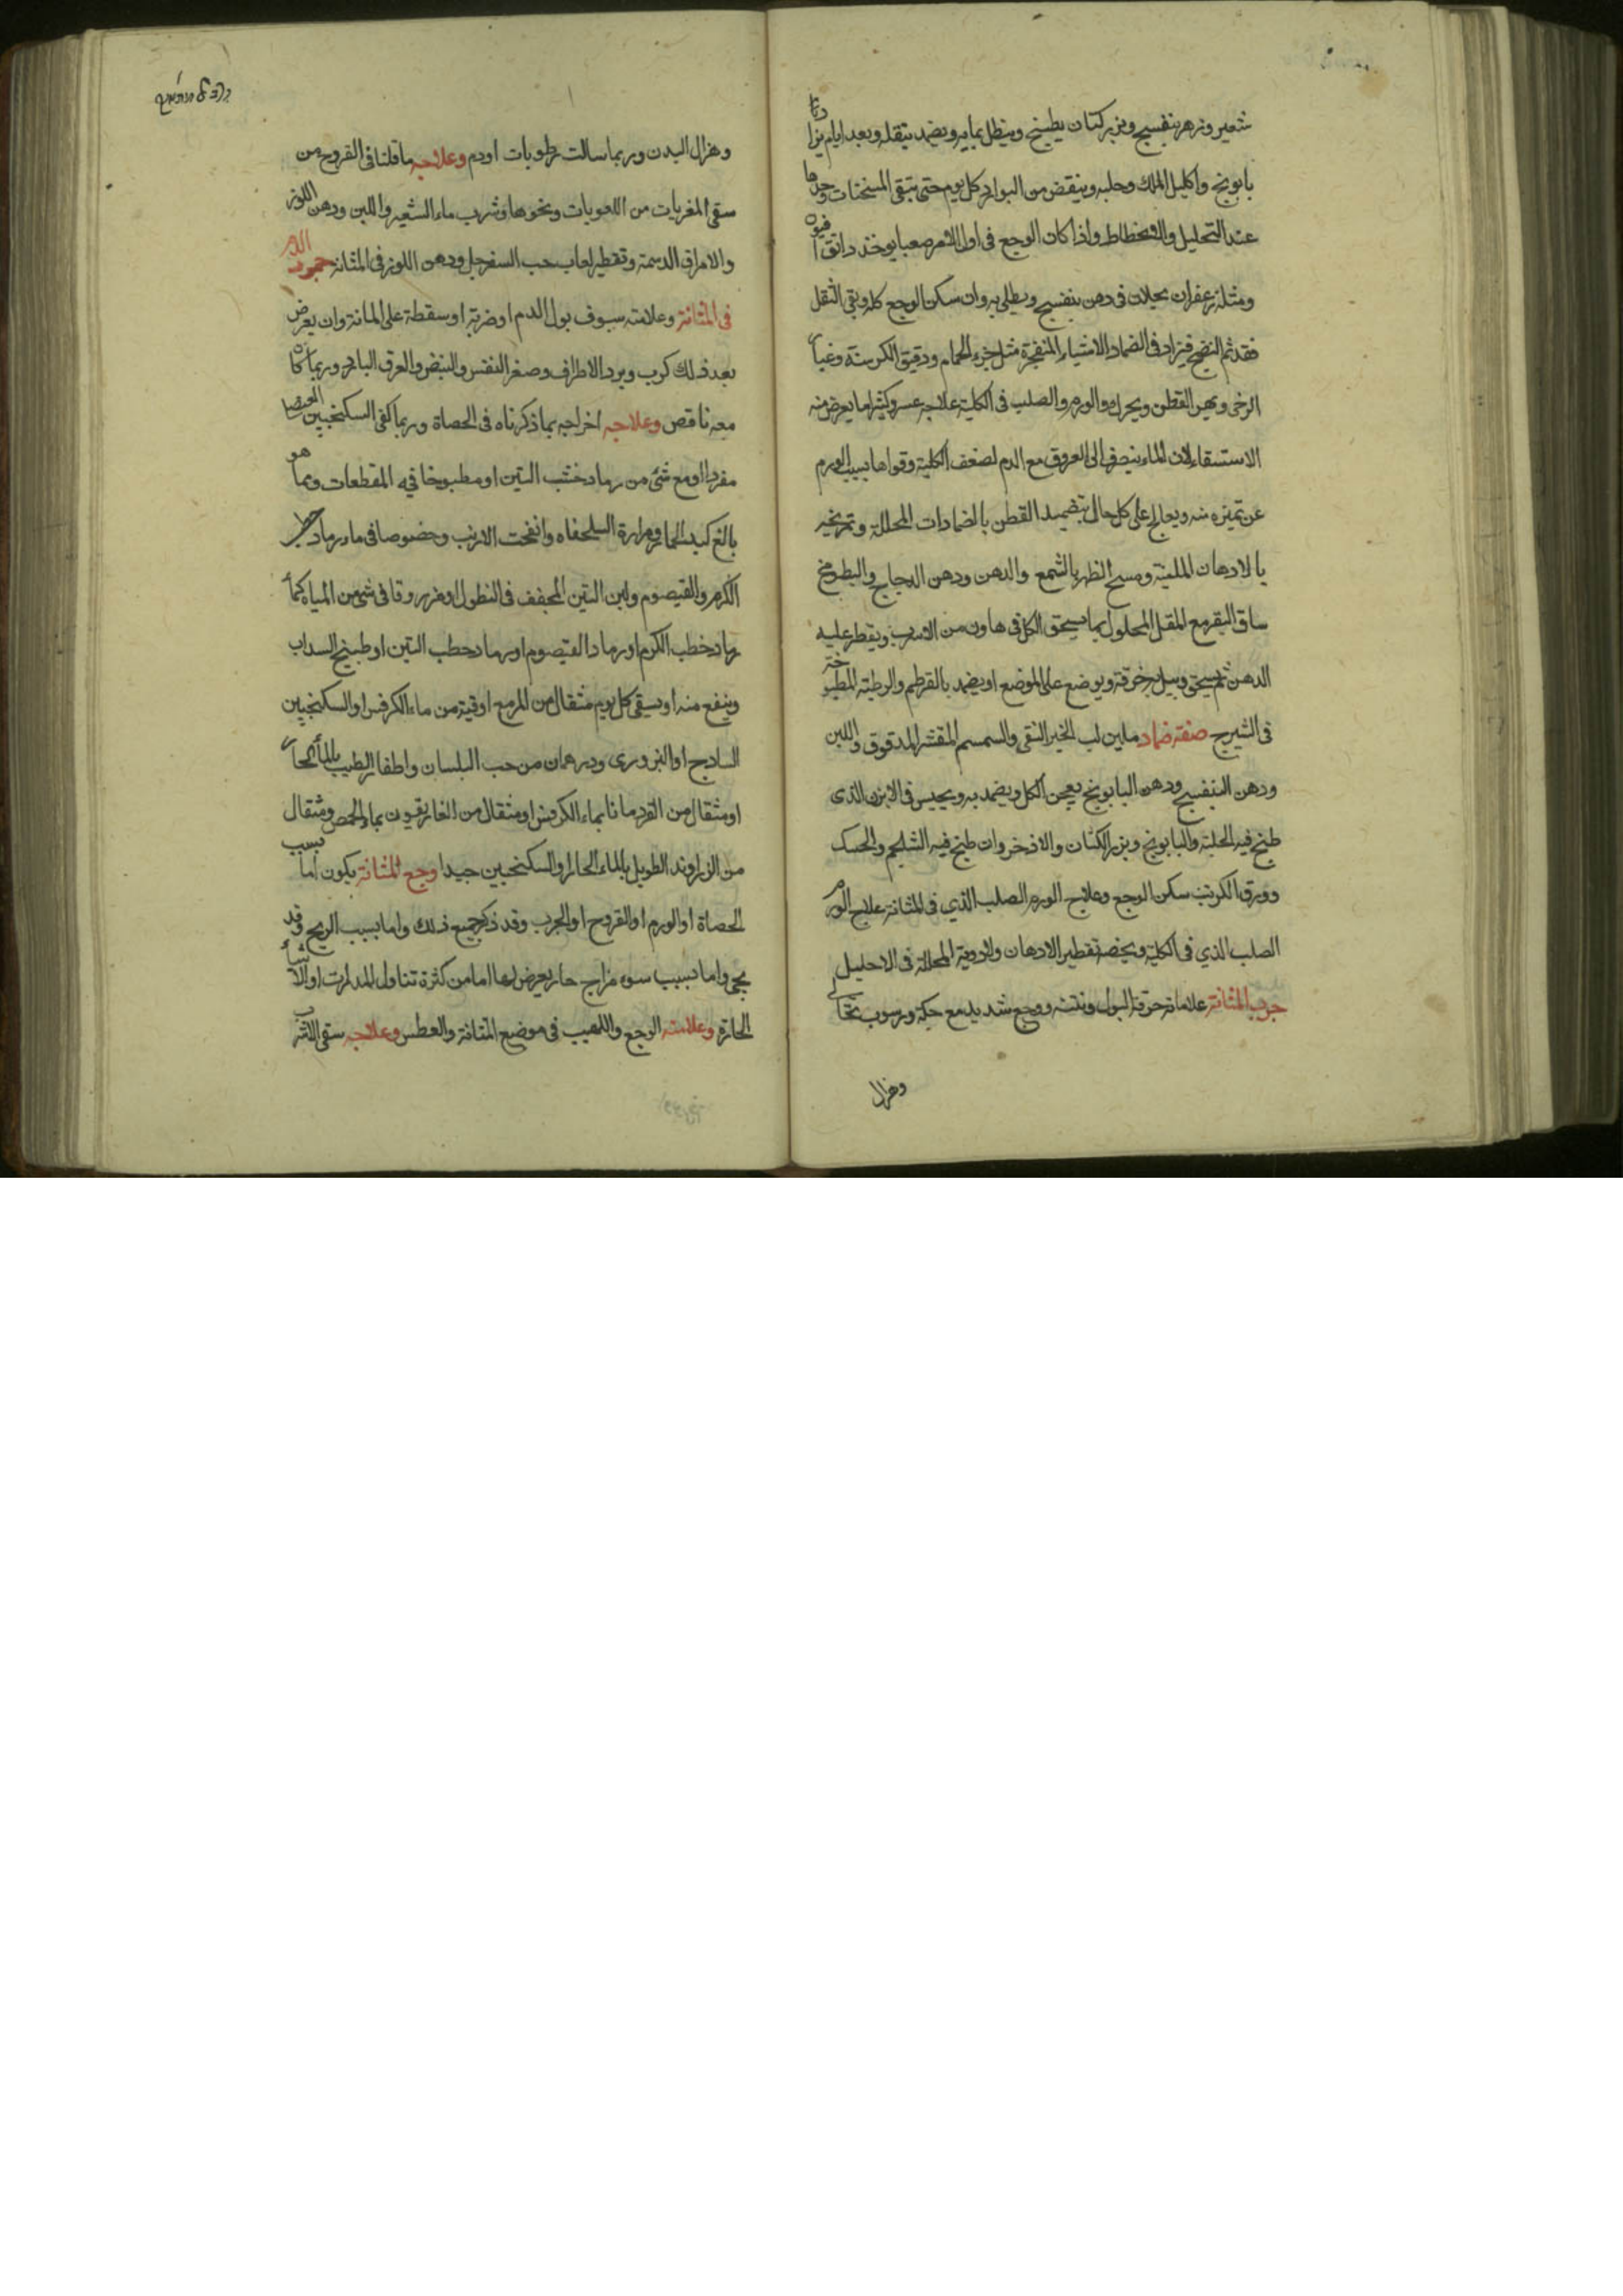 شعير وزهر بنفسج وبزر كتان يطبخ وينطل بمايه ويضمد بثقله وبعد ايام يزاد
بابونج واكليل الملك وحلبه وينقص من البوارد كل يوم حتى تبقى المسخنات وحدها
عند التحليل والانحطاط واذا كان الوجع فى اول الامر صعبا يوخذ دانق افيون
ومثله زعفران يحلان فى دهن بنفسج ويطلى به وان سكن الوجع كله وبقى الثقل
فقد تم النضج فيزاد فى الضماد الاشياء المنفجرة مثل خرء الحمام ودقيق الكرسنة وغبار
الرخى ويهز القطن ويحرك والورم الصلب فى الكلية علاجه عسر وكثيراما يعرض منه
الاستسقاء لان الماء ينصرف الى العروق مع الدم لضعف الكلية وقواها بسبب الورم
عن تميزه منه ويعالج على كل حال بتضميد القطن بالضمادات المحللة وتمريخه
بالادهان الملينة ومسح الظهر بالشمع والدهن ودهن الدجاج والبط ومخ
ساق البقر مع المقل المحلول بما يسحق الكل فى هاون من الاسرب ويقطر عليه
الدهن ثم يسحق ويبل خرقة ويوضع على الموضع او يضمد بالقرطم والرطبة المطبوخة
فى الشيرج صفة ضماد ملين لب الخبز النقى والسمسم المقشر المدقوق واللبن
ودهن البنفسج ودهن البابونج يعجن الكل ويضمد به ويجيس فى الابزن الذى
طبخ فيه الحلبة والبابونج وبزر الكتان والاذخر وان طبخ فيه الشلجم والحسك
وورق الكرنب سكن الوجع وعلاج الورم الصلب الذي فى المثانة علاج الورم
الصلب الذي فى الكلية ويخصه تقطير الادهان والادوية المحللة فى الاحليل
جرب المثانة علاماته حرقة البول ونتنه ووجع شديد مع حكة ورسوب نخالى
وهزال
وهزال البدن وربما سالت رطوبات او دم وعلاجه ما قلنا فى القروح من
سقى المغريات من اللعوبات ونحوها وشرب ماء الشعير واللبن ودهن اللوز
والامراق الدسمة وتقطير لعاب حب السفرجل ودهن اللوز فى المثانة جمود الدم
فى المثانة وعلامته سبوف بول الدم او ضربة او سقطة على المانة وان يعرض
بعد ذلك كرب وبرد الاطراف وصغر النفس والنبض والعرق البارد وربما كان
معه ناقص وعلاجه اخراجه بما ذكرناه فى الحصاة وربما كفى السكنجبين العنصلى
مفردا او مع شئ من رماد خشب التين او مطبوخا فيه المقطعات ومما هو
بالغ كبد الحمار ومرارة السلحفاه وانفحت الارنب وخصوصا فى ماء رماد حطب
الكرم والقيصوم ولبن التين المجفف فى النطول او مزروقا فى شئ من المياه كماء
رماد خطب الكرم او رماد القيصوم او رماد حطب التين او طبنج السداب
وينفع منه او يسقى كل يوم مثقال من المر مع اوقية من ماء الكرفس او السكنجبين
السادج او البزورى ودرهمان من حب البلسان واظفار الطيب بالماء الحار
او مثقال من القردمانا بماء الكرفس او مثقال من الغاريقون بماء الحمص ومثقال
من الزراوند الطويل بالماء الحار والسكنجبين جيدا وجع المثانة يكون اما بسبب
الحصاة او الورم او القروح او الجرب وقد ذكر جميع ذلك واما بسبب الريح وقد
يجى واما بسبب سوء مزاج حار يعرض لها اما من كثرة تناول المدرات او الاشياء
الحارة وعلامته الوجع واللهيب فى موضع المثانة والعطس وعلاجه سقى الاشربة